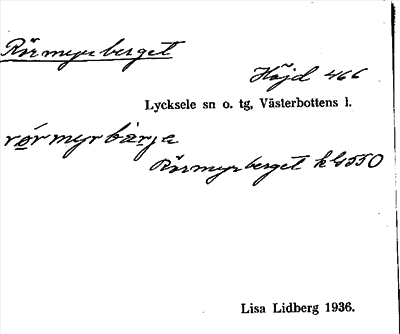 Rörmyrberget
Höjd 466
Lycksele sn o. tg, Västerbottens l.
rörmyrbärja
Rörmyrberget kh 550
Lisa Lidberg 1936.